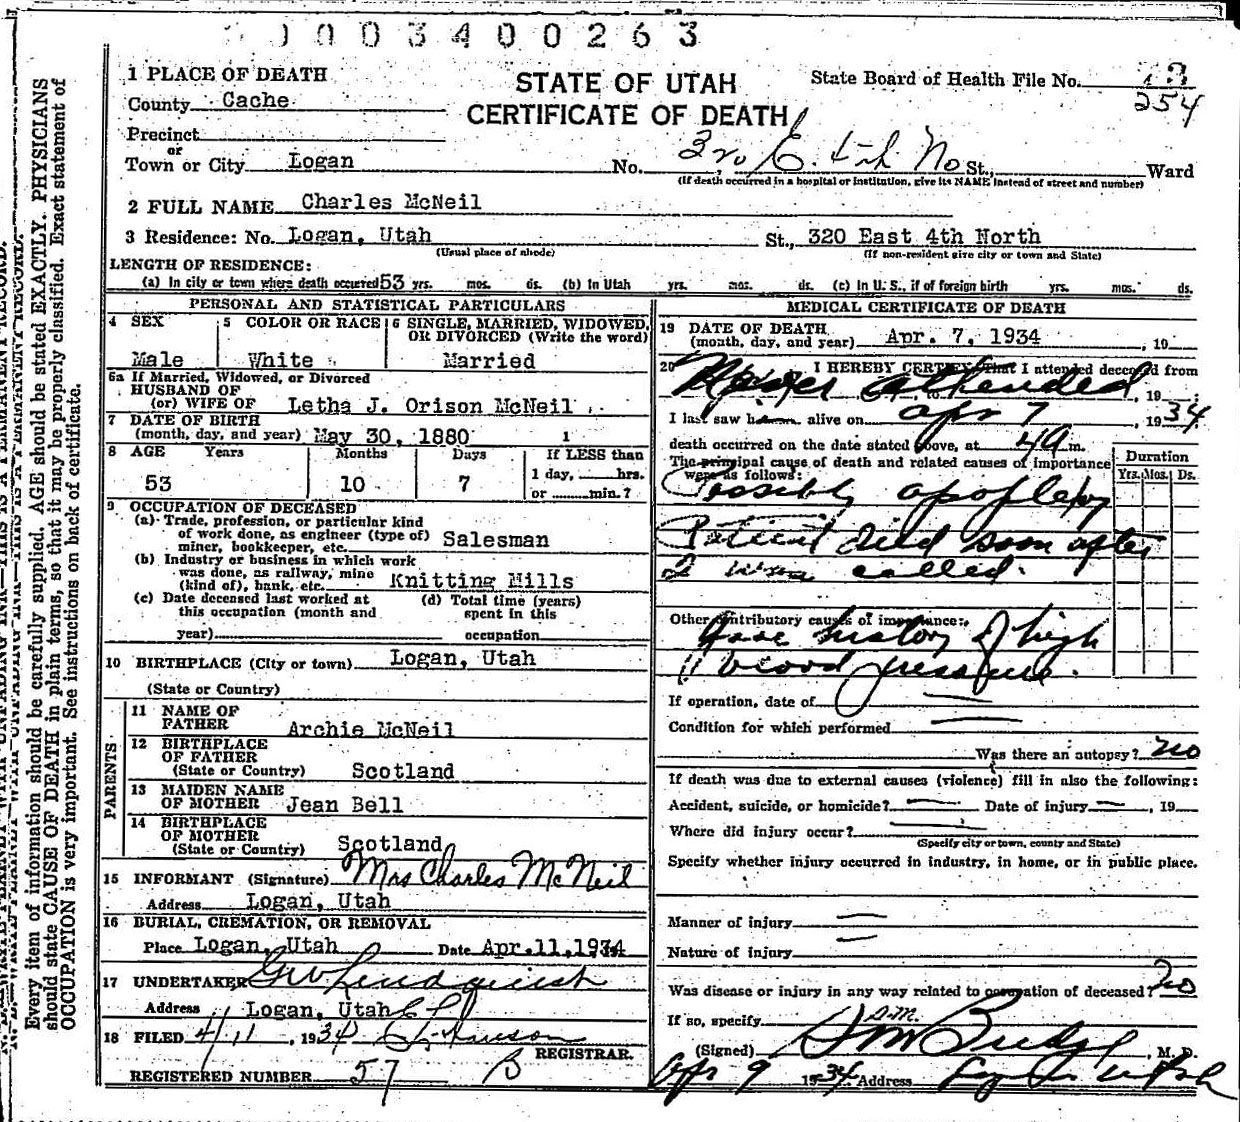 0003400263
1 PLACE OF DEATH
STATE OF UTAH
CERTIFICATE OF DEATH
State Board of Health File No.
254
County Cache
Precinct
or
Town or City Logan No. 320 E. 4th No St., Ward
(If death occurred in a hospital or institution, give its NAME instead of street and number)
2 FULL NAME Charles McNeil
3 Residence: No. Logan, Utah St., 320 East 4th North
(Usual place of abode) (If non-resident give city or town and State)
LENGTH OF RESIDENCE:
(a) In city or town where death occurred 53 yrs. mos. ds. (b) In Utah yrs. mos. ds. (c) In U. S., if of foreign birth yrs. mos. ds.
PERSONAL AND STATISTICAL PARTICULARS
4 SEX
Male
5 COLOR OR RACE
White
6 SINGLE, MARRIED, WIDOWED,
OR DIVORCED (Write the word)
Married
6a If Married, Widowed, or Divorced
HUSBAND OF
(or) WIFE OF Letha J. Orison McNeil
7 DATE OF BIRTH
(month, day, and year) May 30, 1880 1
8 AGE Years Months Days If LESS than
1 day, hrs.
or min.?
53 10 7
9 OCCUPATION OF DECEASED
(a) Trade, profession, or particular kind
of work done, as engineer (type of)
miner, bookkeeper, etc. Salesman
(b) Industry or business in which work
was done, as railway, mine
(kind of), bank, etc. Knitting Mills
(c) Date deceased last worked at
this occupation (month and
year)
(d) Total time (years)
spent in this
occupation
10 BIRTHPLACE (City or town) Logan, Utah
(State or Country)
PARENTS
11 NAME OF
FATHER Archie McNeil
12 BIRTHPLACE
OF FATHER
(State or Country) Scotland
13 MAIDEN NAME
OF MOTHER Jean Bell
14 BIRTHPLACE
OF MOTHER
(State or Country) Scotland
15 INFORMANT (Signature) Mrs Charles McNeil
Address Logan, Utah
16 BURIAL, CREMATION, OR REMOVAL
Place Logan, Utah Date Apr.11,1934
17 UNDERTAKER Geo W Lindquist
Address Logan, Utah
18 FILED 4/11, 1934
REGISTRAR.
REGISTERED NUMBER 57 B
MEDICAL CERTIFICATE OF DEATH
19 DATE OF DEATH
(month, day, and year) Apr. 7, 1934, 19
20 I HEREBY CERTIFY That I attended deceased from
Never attended, 19
I last saw h alive on Apr 7, 1934
death occurred on the date stated above, at m.
The principal cause of death and related causes of importance
were as follows:
Duration
Yrs. Mos. Ds.
Possibly apoplexy
Patient died soon after
I was called.
Other contributory causes of importance:
Gave history of high
blood pressure.
If operation, date of
Condition for which performed
Was there an autopsy? no
If death was due to external causes (violence) fill in also the following:
Accident, suicide, or homicide? Date of injury, 19
Where did injury occur?
(Specify city or town, county and State)
Specify whether injury occurred in industry, in home, or in public place.
Manner of injury
Nature of injury
Was disease or injury in any way related to occupation of deceased? no
If so, specify
(Signed) Budge, M. D.
Apr 9 1934 Address Logan Utah
Every item of information should be carefully supplied. AGE should be stated EXACTLY. PHYSICIANS
should state CAUSE OF DEATH in plain terms, so that it may be properly classified. Exact statement of
OCCUPATION is very important. See instructions on back of certificate.